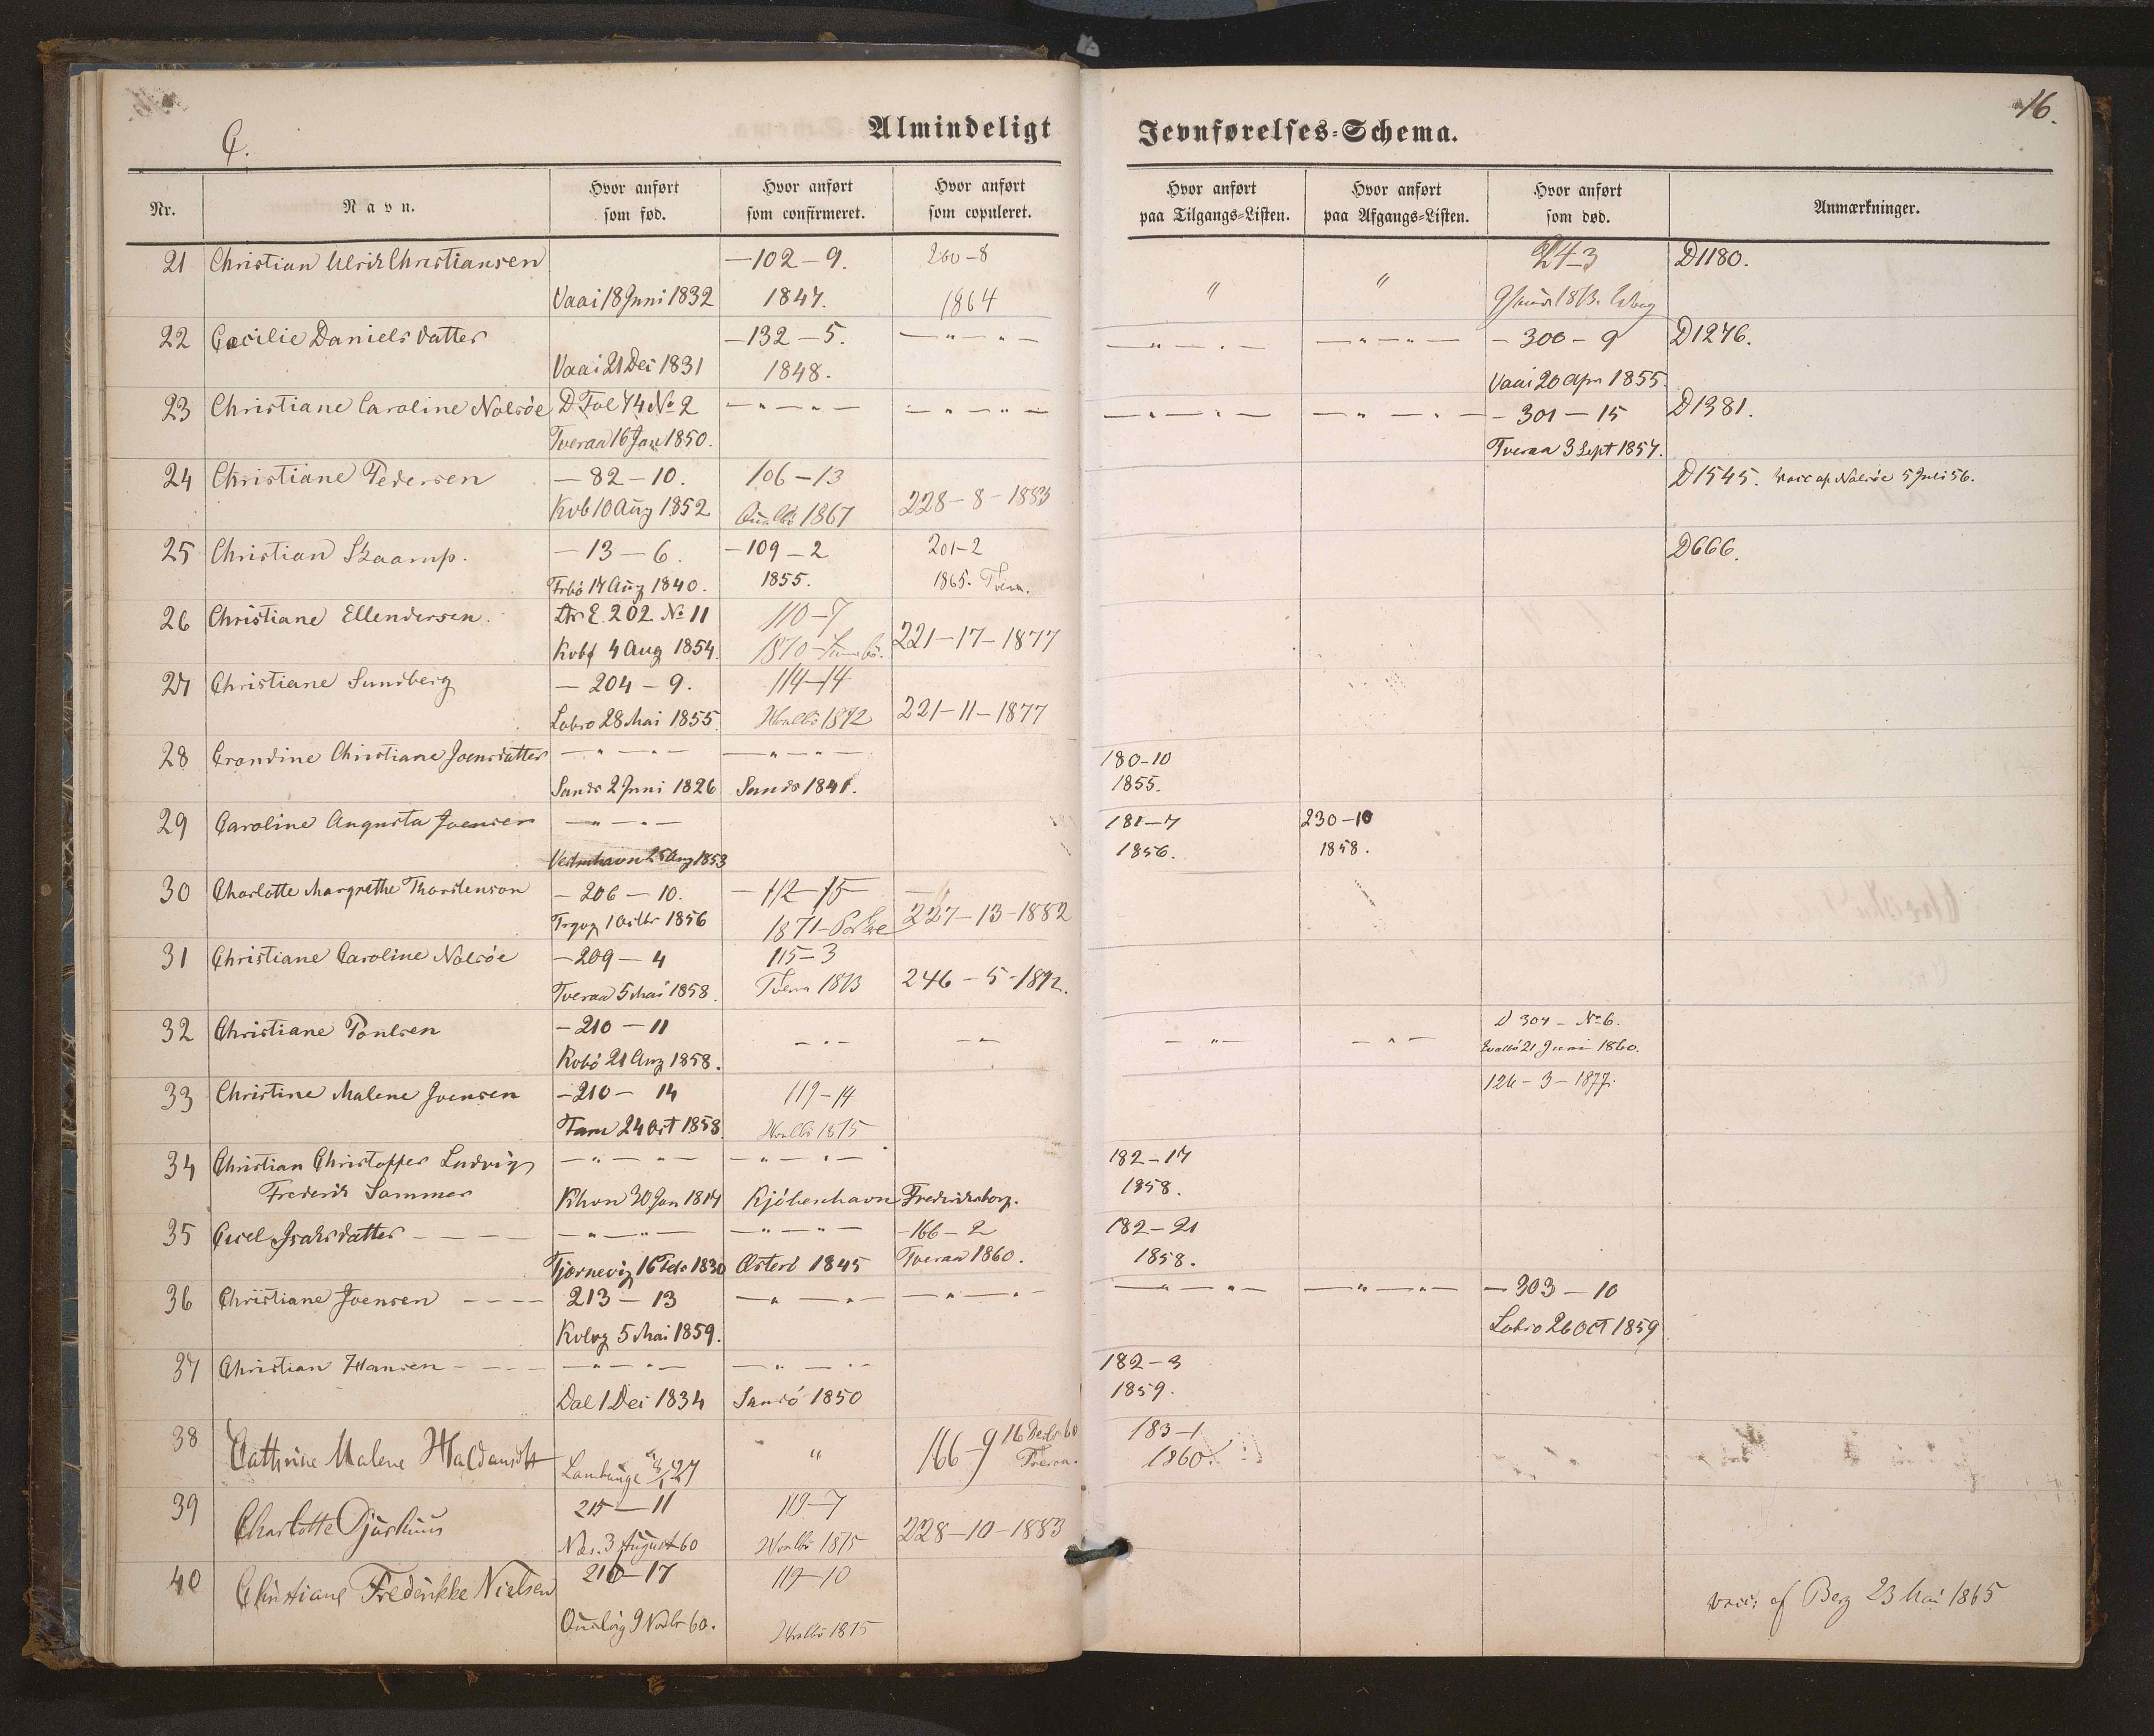 C.
Almindeligt Jevnførelses=Schema.
16.
Nr. Navn. Hvor anført som fød. Hvor anført som confirmeret. Hvor anført som copuleret. Hvor anført paa Tilgangs=Listen. Hvor anført paa Afgangs=Listen. Hvor anført som død. Anmærkninger.
21 Christian Ulrich Christiansen — 102 — 9. 260-8 24-3 D1180.
Vaai 18 Juni 1832 1847. 1864 " "
22 Cecilie Daniels datter — 132 — 5. — " — " — — " — " — — " — " — — 300 — 9 D1276.
Vaai 21 Dec 1831 1848. Vaai 20 Apr 1855.
23 Christiane Caroline Nolsöe D. Fol 74 No 2 — " — " — — " — " — — " — " — — " — " — — 301 — 15 D1381.
Tveraa 16 Jan 1850. Tveraa 3 Sept 1857.
24 Christiane Pedersen — 82 — 10. 106 — 13 D1545. vacc af Nolsöe 5 Juli 56.
Kvb 10 Aug 1852 1867 228 — 8 — 1883
25 Christian Skaarup. — 13 — 6. — 109 — 2 201-2 D666.
Frbö 17 Aug 1840. 1855. 1865. Tvera.
26 Christiane Ellendersen. Ltr E. 202 No 11 110-7
4 Aug 1854. 1870 221-17-1877
27 Christiane Sundberg — 204 — 9. 114-14
Lobro 28 Mai 1855. Hvalbö 1872 221-11-1877
28 Christiane Joensdatter — " — " — — " — " — 180-10
Sands 2 Juni 1826 Sands 1841. 1855.
29 Caroline Augusta Joensen — " — " — 181-7 230-10
25 Aug 1853 1856. 1858.
30 Charlotte Margrethe Thorstenson — 206 — 10. — 112-15
1 Octbr 1856 1871 227-13-1882
31 Christiane Caroline Nolsöe — 209 — 4 115-3
Tveraa 5 Mai 1858. Tvera 1873 246-5-1892.
32 Christiane Poulsen — 210 — 11 — " — — " — — " — — " — D 304 — No 6.
Kvbö 21 Aug 1858. Hvalbö 21 Juni 1860.
33 Christine Malene Joensen — 210 — 14 119-14 124-3-1877.
Fam 24 Oct 1858. Hvalbö 1875
34 Christian Christoffer Ludvig — " — " — — " — " — 182-17
Frederik Sommer Khvn 30 Jan 1814 Kjöbenhavn Fredriksborg. 1858.
35 Cicel Isaksdatter — — — — " — " — — " — " — — 166 — 2 182-21
Tjörnevig 16 Feb 1830 Österö 1845 Tveraa 1860. 1858.
36 Christiane Joensen — — — 213 — 13 — " — " — — " — " — — " — " — — " — " — — 303 — 10
5 Mai 1859. Lobro 26 Oct 1859
37 Christian Hansen — — — — " — " — — " — " — 182-3
Dal 1 Dec 1834 Sandö 1850 1859.
38 Cathrine Malene " 166-9 16 Decbr 60 183-1
Lambauge Tveraa. 1860.
39 Charlotte Djurhuus 215-11 119-7
Næs. 3 August 60 Hvalbö 1875 228-10-1883
40 Christiane Frederikke Nielsen 216-17 119-10 vacc: af Berg 23 Mai 1865
9 Novbr 60. Hvalbö 1875